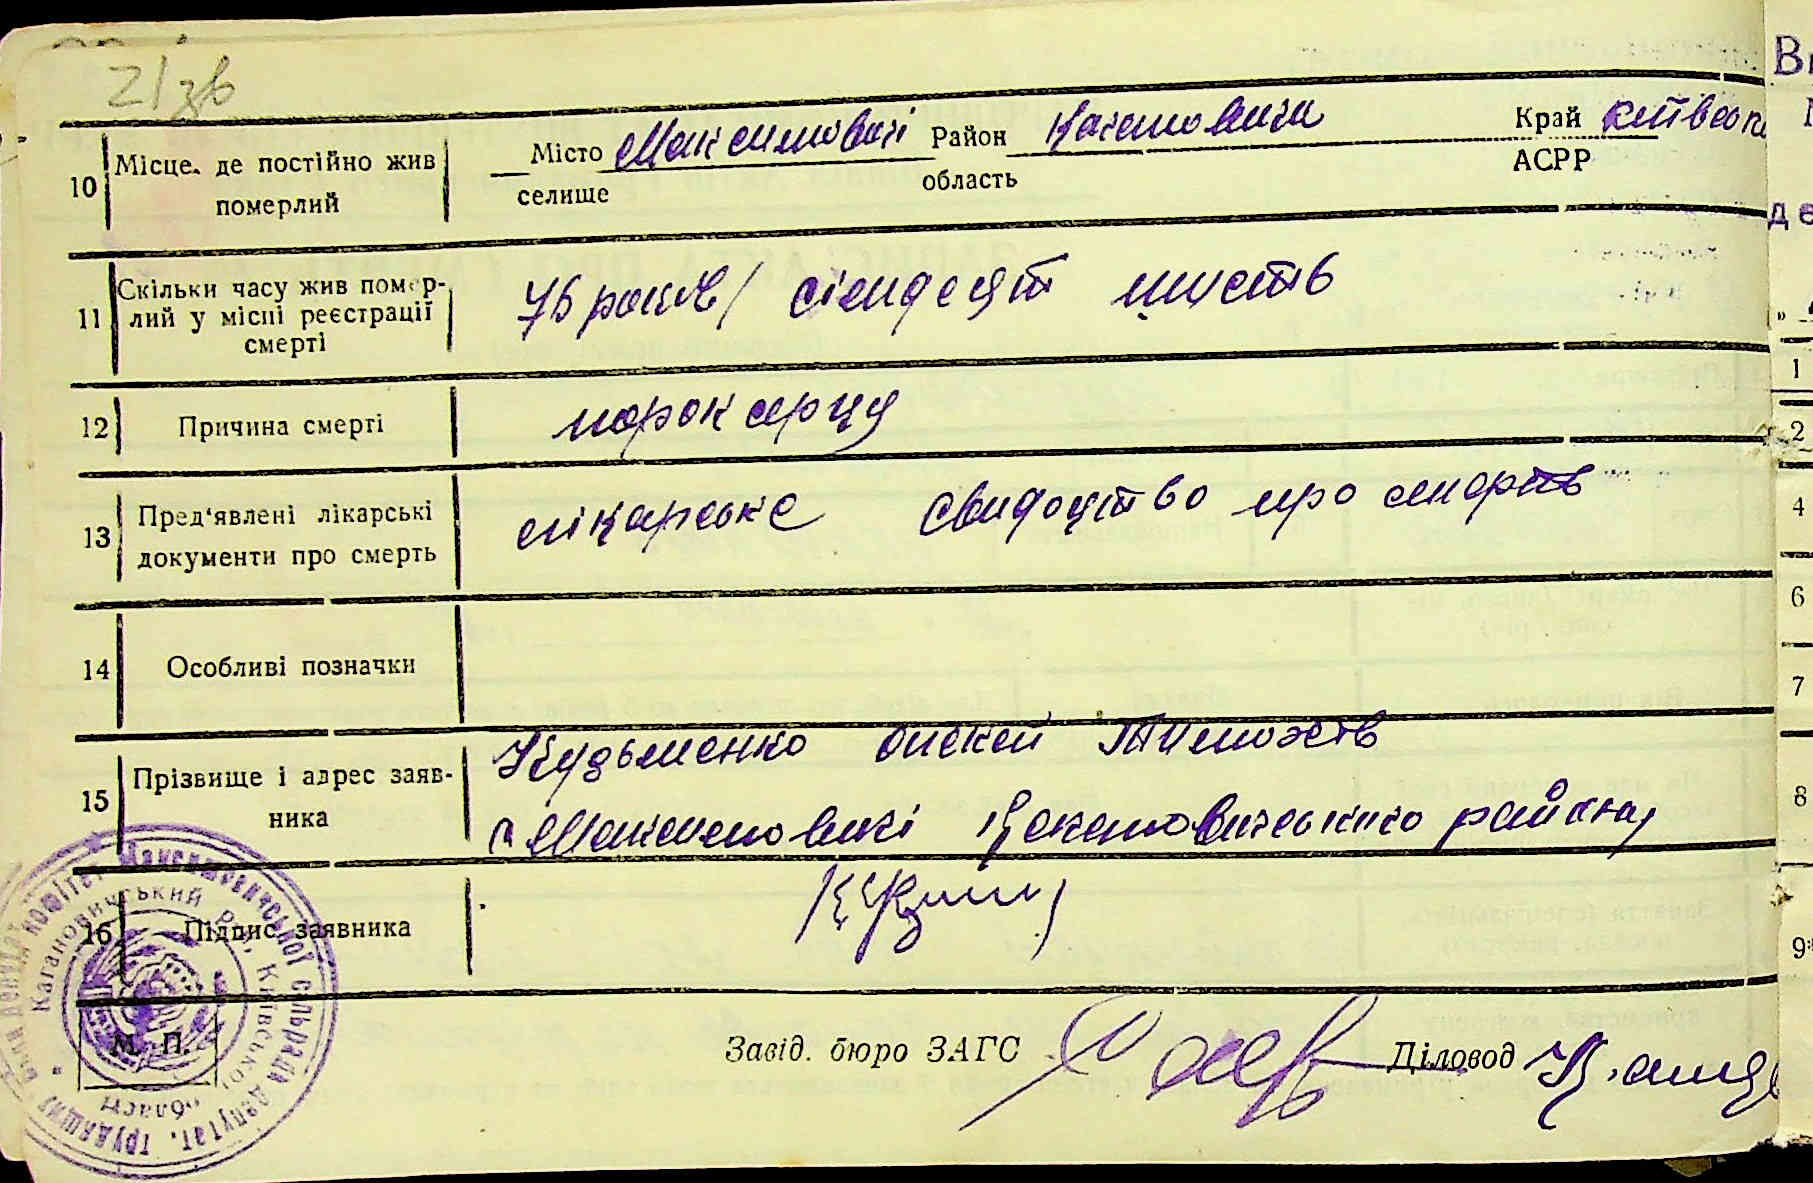 21 зв
10 Місце, де постійно жив померлий Місто Максимовичі Район Кагановича Край Київсо
селище область АСРР
11 Скільки часу жив помер-
лий у місці реєстрації
смерті 76 років / сімдесят шисть
12 Причина смерті порок серця
13 Пред'явлені лікарські
документи про смерть лікарське свидоцтво про смерть
14 Особливі позначки
15 Прізвище і адрес заяв-
ника Кузьменко
с Максимовичі Кагановичського району
16 Підпис заявника
М. П.
Максимовичської сільради депутат. трудящих
Кагановичський р-н, Київської області
Завід. бюро ЗАГС Діловод
В
де
1
2
4
6
7
8
9